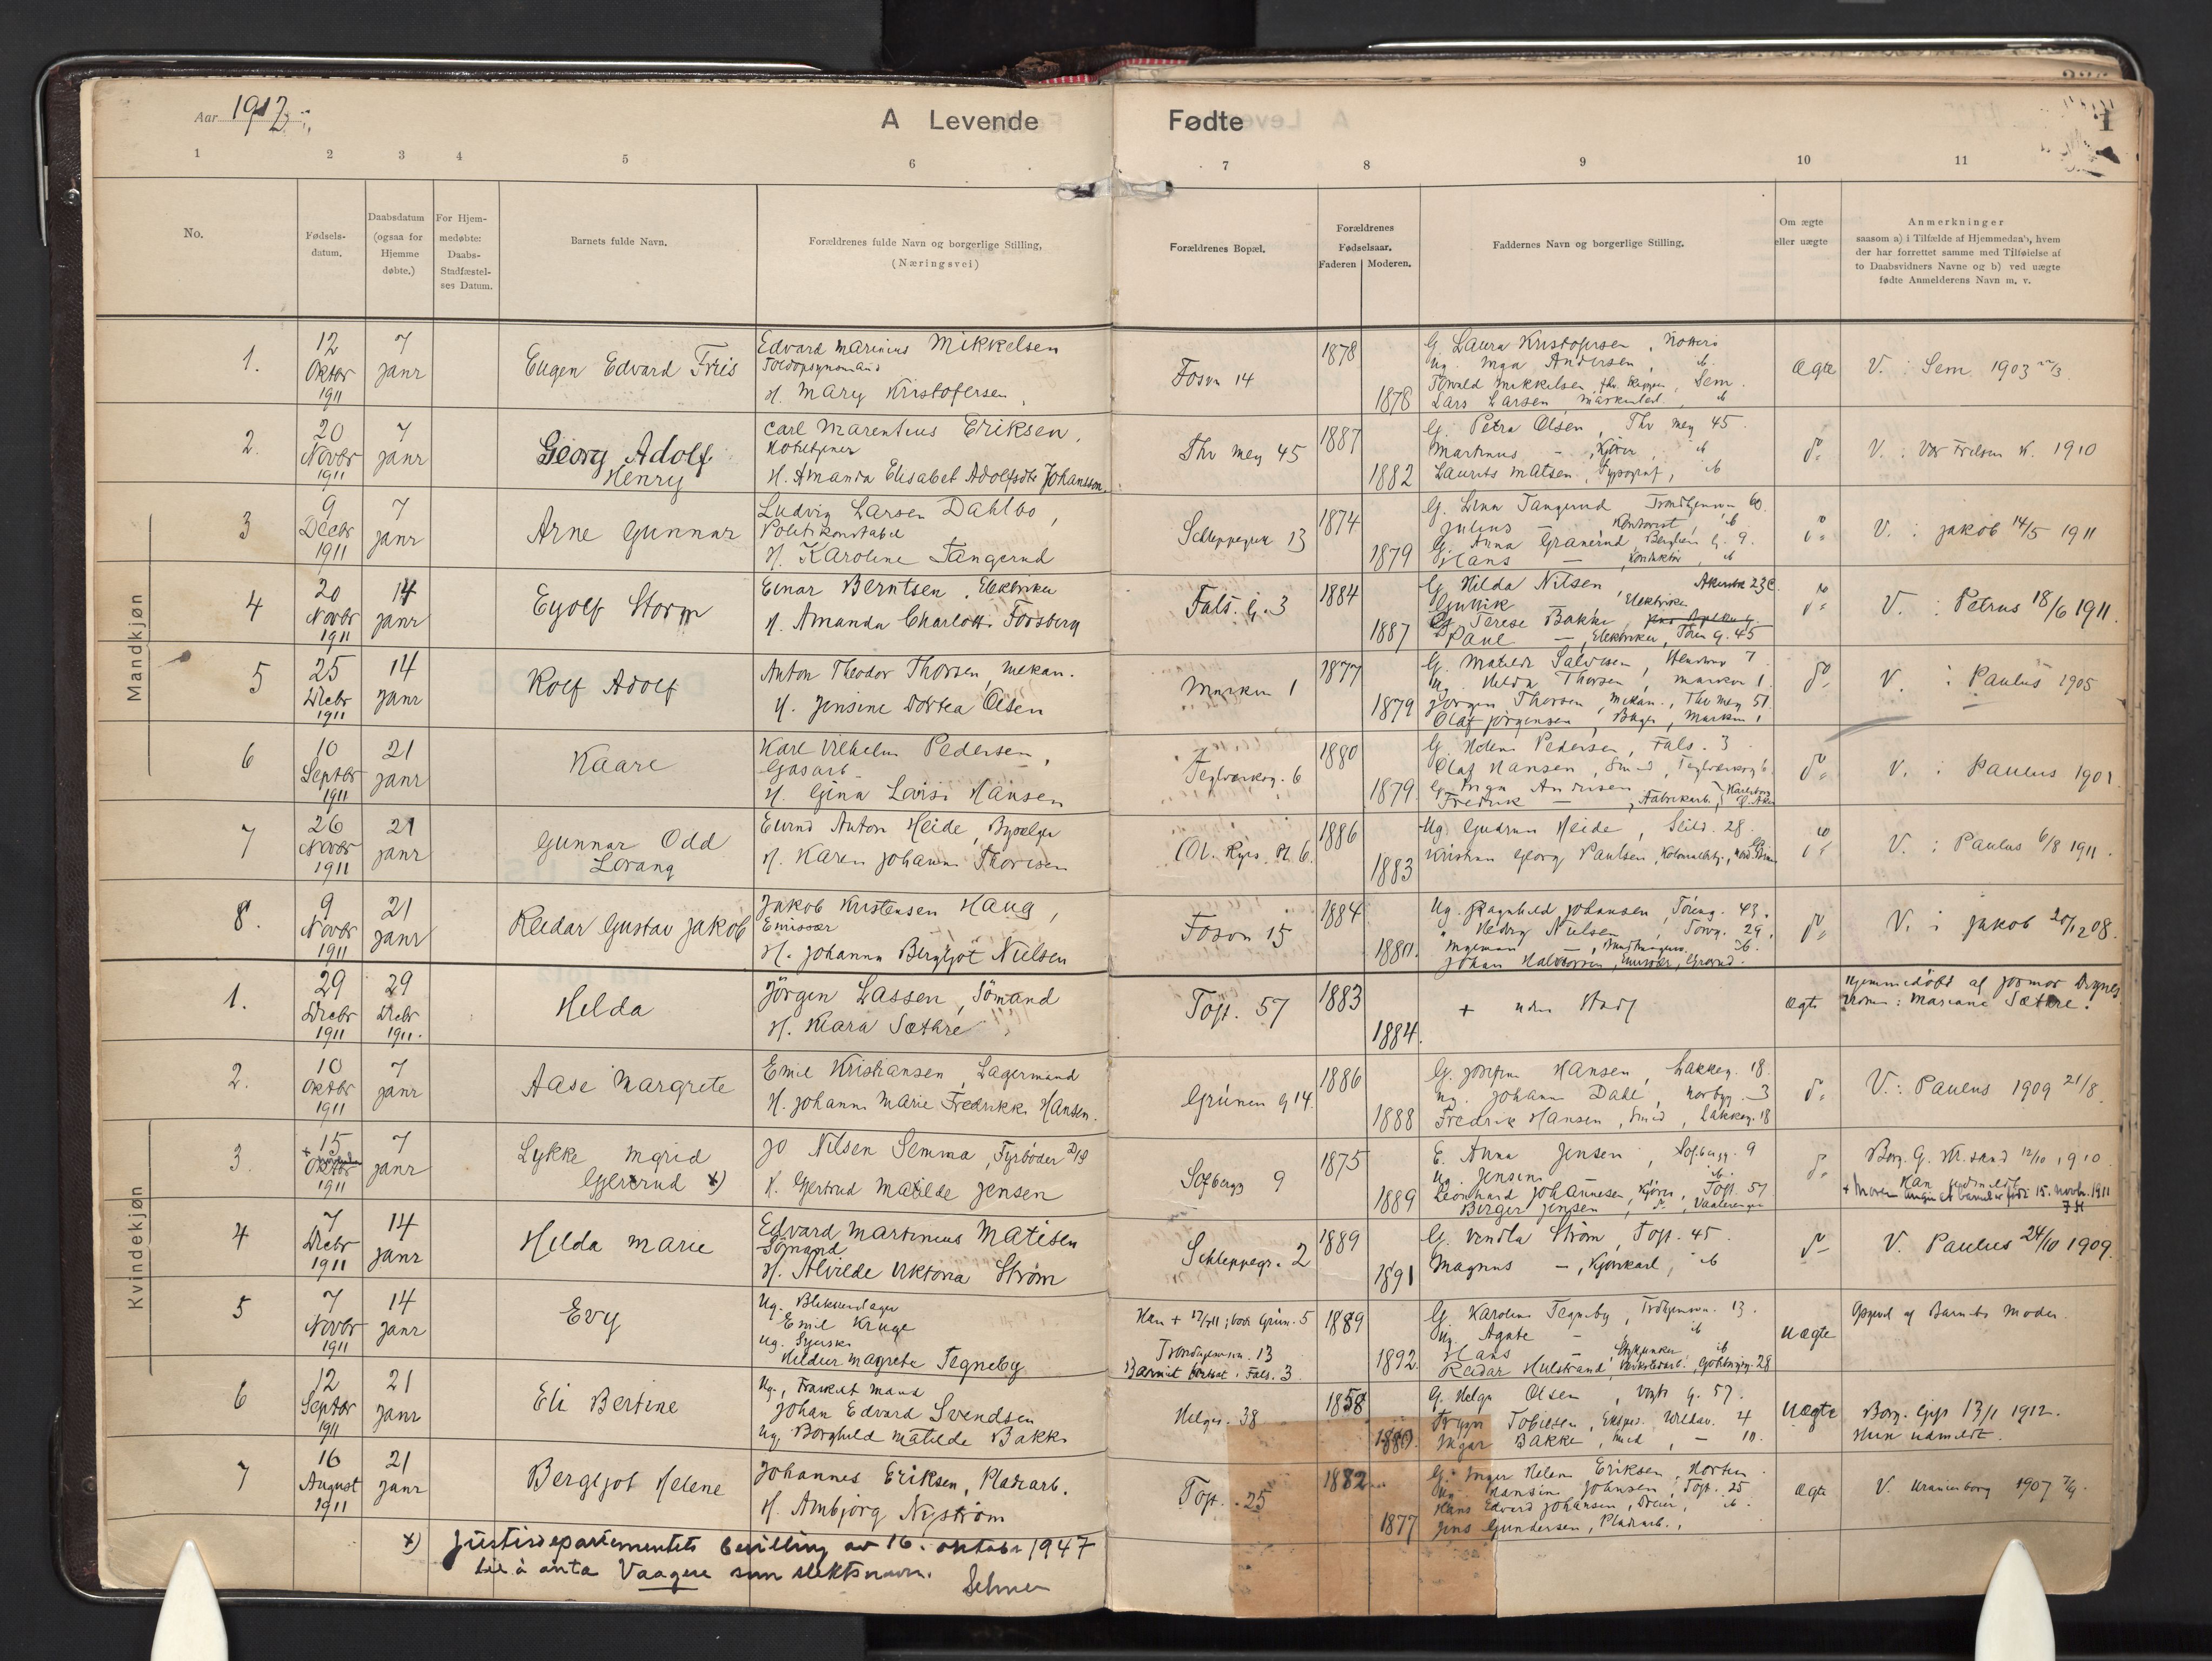 Aar 1912
A Levende Fødte
1
1 2 3 4 5 6 7 8 9 10 11
No.
Fødsels-
datum.
Daabsdatum
(ogsaa for
Hjemme
døbte.)
For Hjem-
medøbte:
Daabs-
Stadfæstel-
ses Datum.
Barnets fulde Navn.
Forældrenes fulde Navn og borgerlige Stilling,
(Næringsvei)
Forældrenes Bopæl.
Forældrenes
Fødselsaar.
Faderen Moderen.
Faddernes Navn og borgerlige Stilling.
Om ægte
eller uægte
Anmerkninger
saasom a) i Tilfælde af Hjemmedaab, hvem
der har forrettet samme med Tilføielse af
to Daabsvidners Navne og b) ved uægte
fødte Anmelderens Navn m. v.
Mandkjøn
1.
12
Oktbr
1911
7
janr
Eugen Edvard Friis
Edvard Marinius Mikkelsen
H. Mary Kristofersen
Fosvn 14
1878
1878
G. Laura Kristofersen, Nøtterø
Ug. Inga Andersen, ib.
Lars Larsen
Ægte
V. : Sem 1903
2.
20
Novbr
1911
7
janr
Georg Adolf
Henry
Carl Marentius Eriksen,
H. Amanda Elisabet Adolfsdtr Johansson
Thv mey 45
1887
1882
G. Petra Olsen, Thv mey 45
Martinus – Kjører, ib
Laurits Matsen, Typograf, ib
do
V. : Vor Frelsers K. 1910
3
9
Decbr
1911
7
janr
Arne Gunnar
Ludvig Larsen Dahlbo,
Politikonstabel
H. Karoline Tangerud
Schleppegra 13
1874
1879
G. Lina Tangerud 60
Julius – Kontorist, ib
G. Anna Granerud 9.
Hans – Konduktør, ib
do
V. : Jakob 14/5 1911
4
20
Novbr
1911
14
janr
Eyolf Storm
Einar Berntsen, Elektriker
H. Amanda Charlotte Forsberg
Fals. g. 3
1884
1887
G. Hilda Nilsen, 23 c
Gunnik Elektriker
G. Terese Bakke,
Paul – Elektriker, g. 45
do
V. : Petrus 18/6 1911.
5
25
Decbr
1911
14
janr
Rolf Adolf
Anton Theodor Thorsen, mekan.
H. Jensine Dortea Olsen
Marken 1
1877
1879
G. Matilde Salvesen, 7
Ug. Helda Thorsen, Marken 1.
Jørgen Thorsen, Mekan., Thv mey 51.
Olaf Jørgensen, Bager, Marken 1
do
V. : Paulus 1905
6
10
Septbr
1911
21
janr
Kaare
Karl Vilhelm Pedersen,
Gasarb.
H. Gina Lovise Hansen
Teglverksg. 6
1880
1879
G. Helene Pedersen, Fals. 3
Olaf Hansen, Smed, Teglverksg 6
G. Inga Andersen
Fredrik – Fabrikarb.,
do
V. : Paulus 1901
7
26
Novbr
1911
21
janr
Gunnar Odd
Lorang
Eivind Anton Heide,
H. Karen Johanne Thoresen
Ol. Ryes. Pl. 6.
1886
1883
Ug. Gudrun Heide, Seild. 28
Kristian Georg Paulsen,
do
V. : Paulus 6/8 1911.
8.
9
Novbr
1911
21
janr
Reidar Gustav Jakob
Jakob Kristensen Haug,
Emissær
H. Johanna Bergljot Nielsen
Fosvn 15
1884
1880.
Ug. Ragnhild Johansen, 43.
" Hedvig Nielsen, 29,
Ingeman –
Johan Halvorsen, Emissær,
do
V. i Jakob 20/12 08.
Kvindekjøn
1.
29
Decbr
1911
29
Decbr
1911.
Helda
Jörgen Lassen, Sömand
H. Klara Sæthre
Toft. 57
1883
1884.
+ uden Stadf
ægte
Hjemmedøbt af Jormor
Mariane Sæthre.
2.
10
Oktbr
1911
7
janr
Aase Margrete
Emil Kristiansen, Lagermand
H. Johanne Marie Fredrikke Hansen.
Grünen g 14.
1886
1888
G. Josefine Hansen, Lakkeg. 18.
Ug. Johanne Dahl, Norbyg. 3
Fredrik Hansen, Smed, Lakkeg. 18
do
V. : Paulus 1909 21/8
3.
+ 15
Oktbr
1911
7
janr
Lykke Ingrid
Gjertrud x)
Jo Nilsen Semma, Fyrbøder D/S
H. Gjertrud Matilde Jensen
Sofbergg 9
1875
1889
E. Anna Jensen, Sofbergg. 9
Ug. Jensine ib.
Leonhard Johannesen, Kjører, Toft. 57
Birger Jensen, Vaalerengen
do
Borg. G. Kr.sand 12/10 1910.
Han udmeldt
født 15. novbr. 1911
4
7
Decbr
1911
14
janr
Helda Marie
Edvard Martinius Matisen
Sömand
H. Alvilde Viktoria Strøm
Schleppegr. 2
1889
1891
G. Vendla Strøm, Toft. 45.
Magnus –, Kjørekarl, ib
do
V. Paulus 24/10 1909.
5
7
Novbr
1911
14
janr
Evy
Ug. Blikkenslager
Emil Kruge
Ug. Syerske
Hildur Magrete Tegneby
Han + 17/7 11; boede Grün. 5
Trondhjemsvn. 13
Barnet fortsat. Fals. 3
1889
1892.
G. Karoline Tegneby, 13.
Ug. Agate – ib
Hans ib
Reidar Hulstrand, 28
Uægte
Opgivet af Barnets Moder
6
12
Septbr
1911
21
janr
Eli Bertine
Ug., Fraskilt mand
Johan Edvard Svendsen
Ug. Borghild Matilde Bakke
Helges. 38
1858
1880.
G. Helga Olsen, Vogts g. 57.
Trygve Tobiesen, 4
Ingar Bakke, – 10.
Uægte
Borg. Gift 13/1 1912.
Hun udmeldt.
7
16
August
1911
21
janr
Bergljot Helene
Johannes Eriksen, Pladsarb.
H. Ambjörg Nyström
Toft. 25
1882
1877
G. Inger Helene Eriksen, Horten
Ug. Hansine Johnsen, Toft. 25
Hans Edvard Johansen, Dreier, ib.
Jens Gundersen, Pladsarb.,
Ægte
V. Uranienborg 1907
x) Justisdepartementets bevilling av 16. oktober 1947
til å anta Vaagene som slektsnavn.